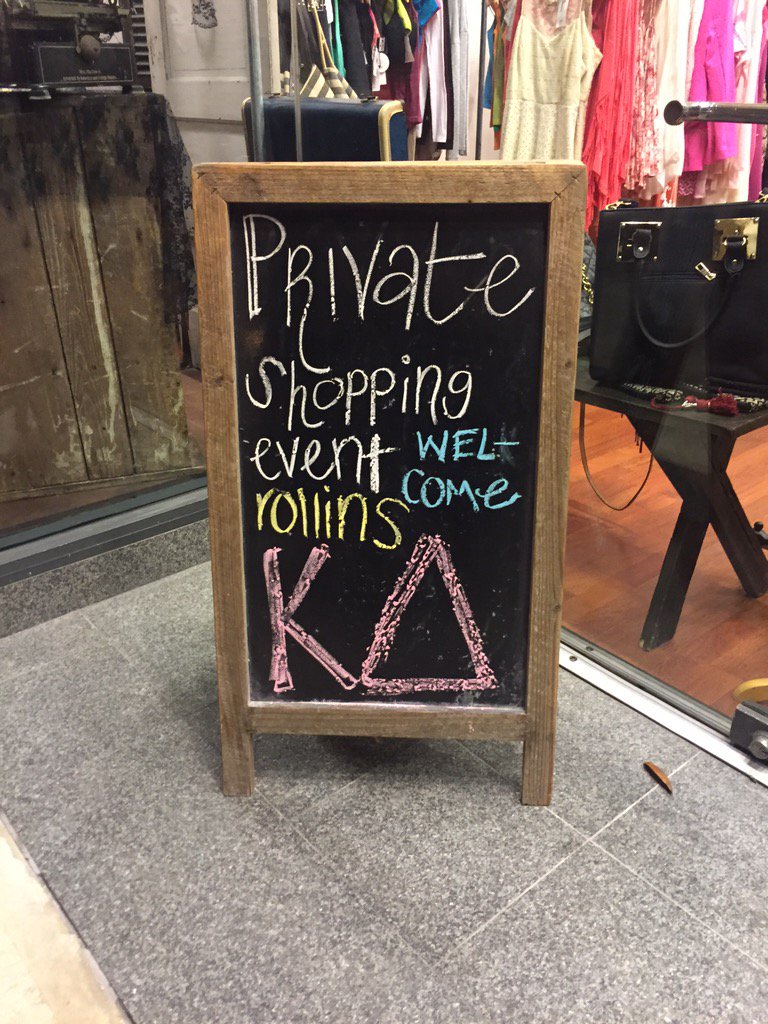 Private
shopping
event WEL-
COMe
rollins
ΚΔ